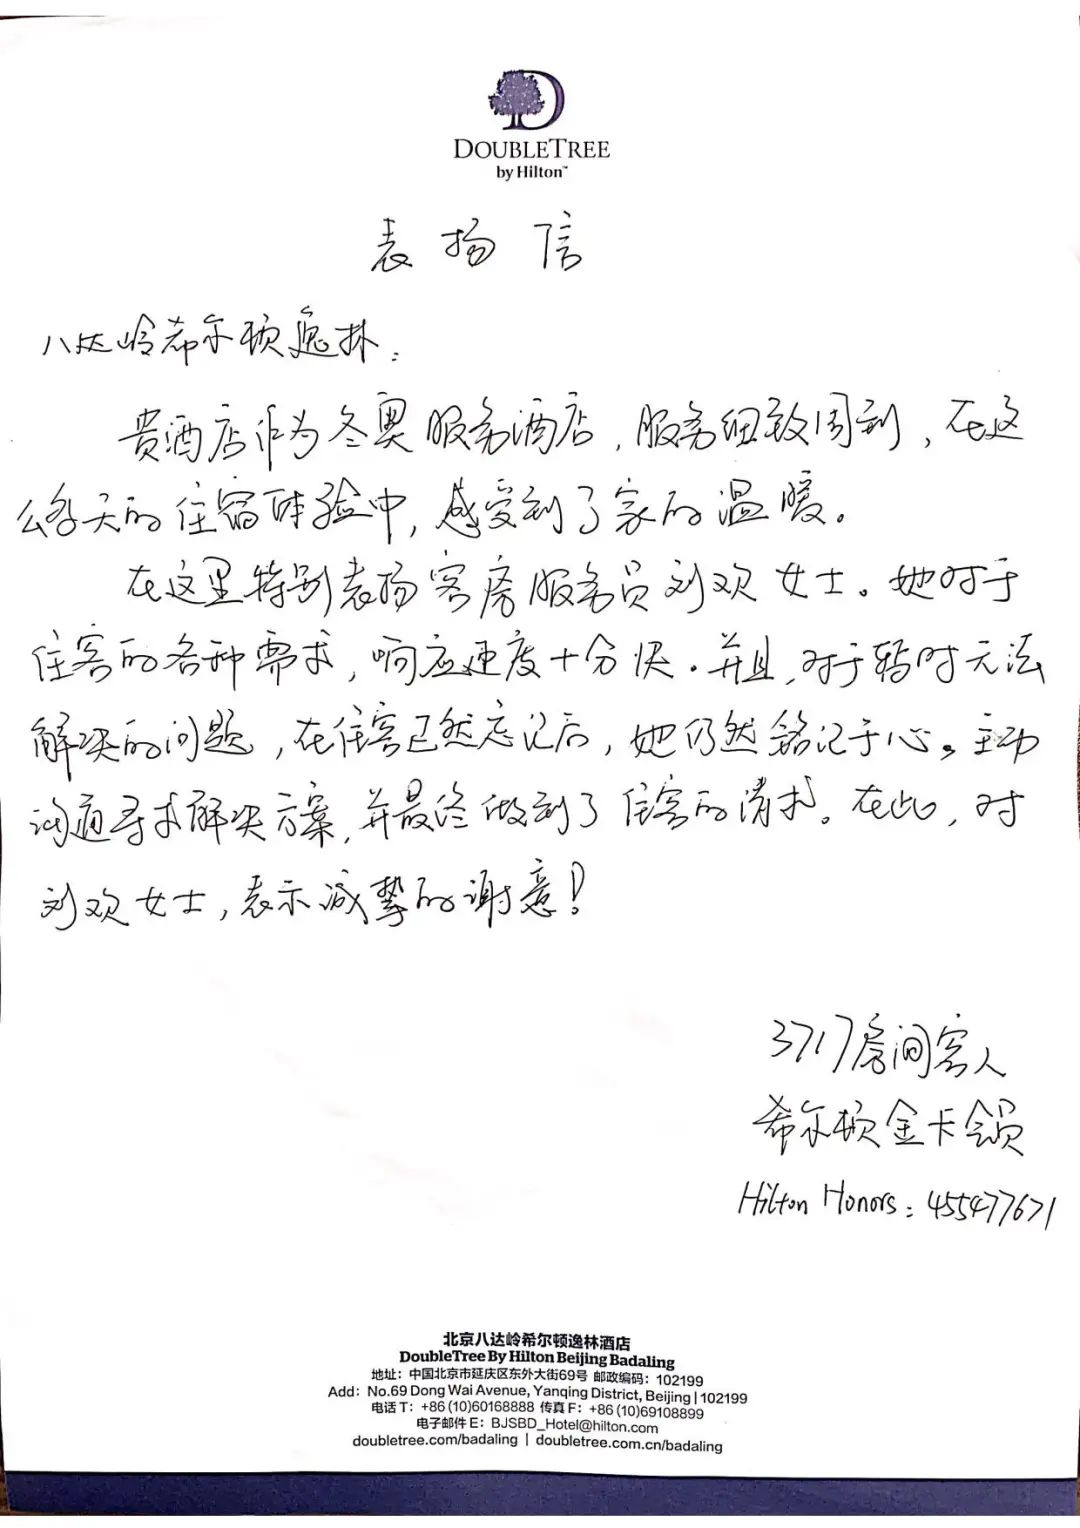 DOUBLETREE
by Hilton™
表扬信
八达岭希尔顿逸林：
贵酒店作为冬奥服务酒店，服务细致周到，在这
么多天的住宿体验中，感受到了家的温暖。
在这里特别表扬客房服务员刘欢女士。她对于
住客的各种需求，响应速度十分快。并且，对于暂时无法
解决的问题，在住客已然忘记后，她仍然铭记于心。主动
沟通寻求解决方案，并最终做到了住客的请求。在此，对
刘欢女士，表示诚挚的谢意！
3717房间客人
希尔顿金卡会员
Hilton Honors：455477671
北京八达岭希尔顿逸林酒店
DoubleTree By Hilton Beijing Badaling
地址：中国北京市延庆区东外大街69号 邮政编码：102199
Add：No.69 Dong Wai Avenue, Yanqing District, Beijing | 102199
电话 T：+86 (10)60168888 传真 F：+86 (10)69108899
电子邮件 E：BJSBD_Hotel@hilton.com
doubletree.com/badaling | doubletree.com.cn/badaling